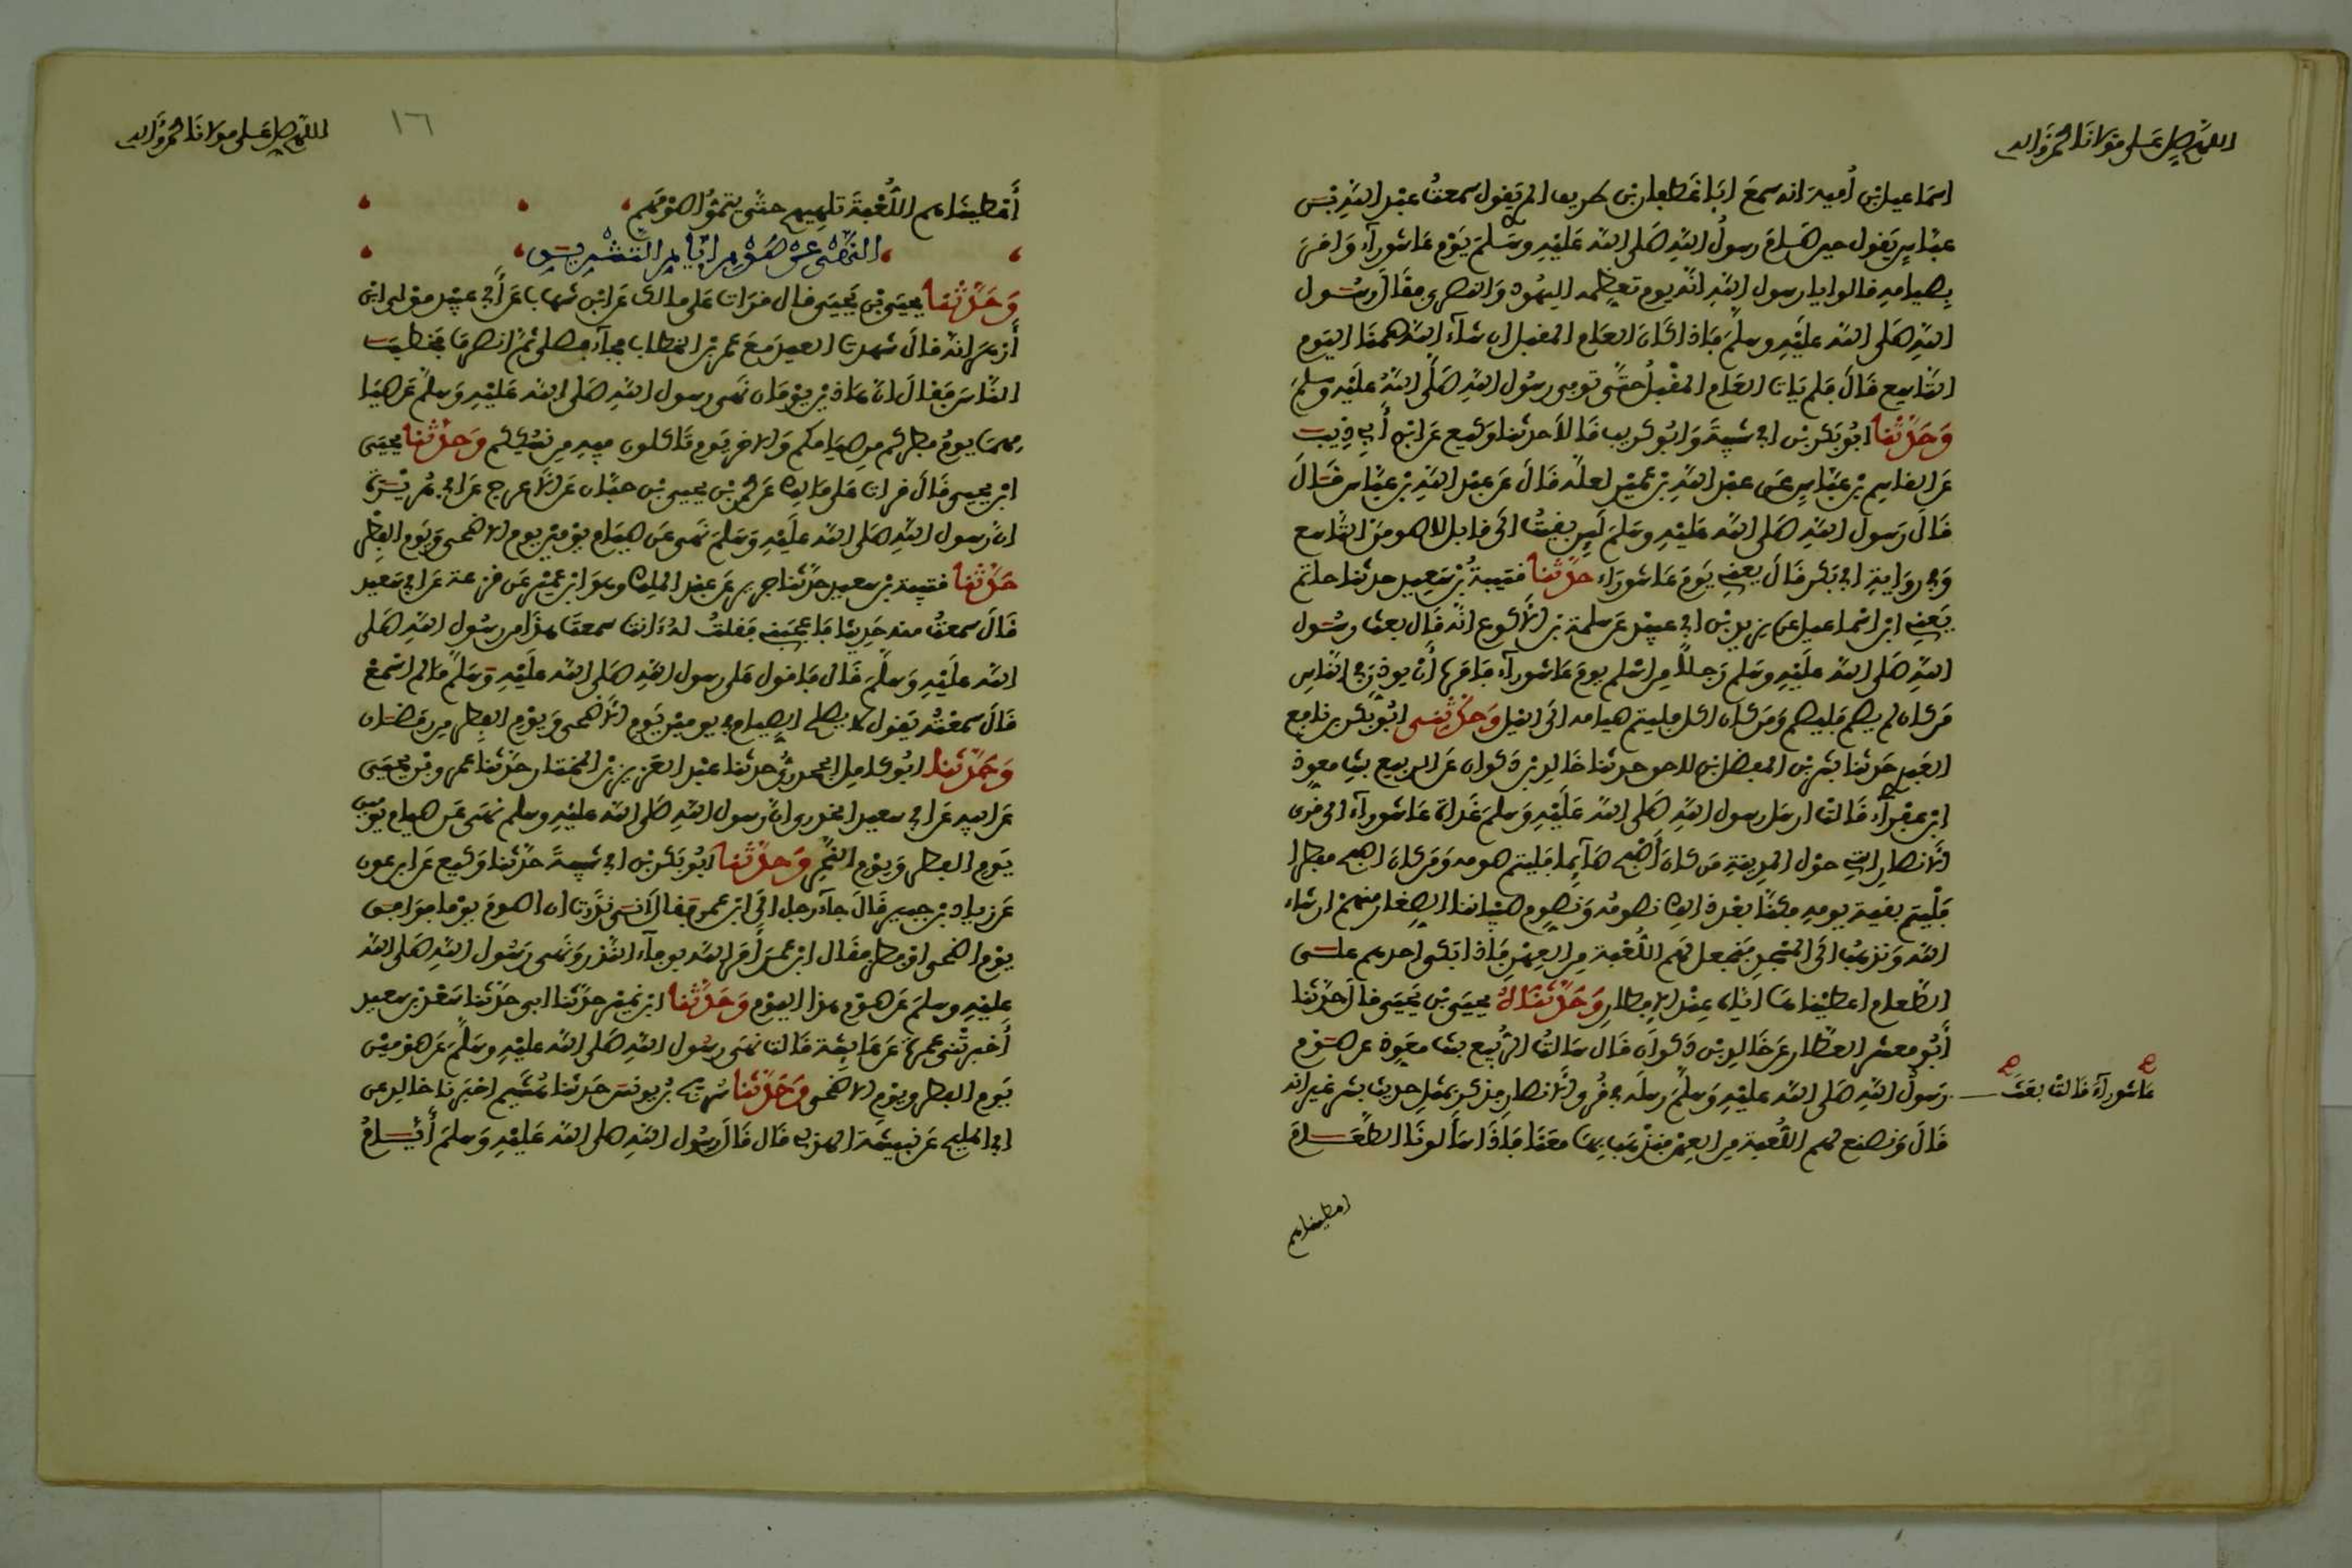 اللهم صل على مولانا محمد وءاله
اسماعيل بن أمية انه سمع ابا غطفان بن طريف المري يقول سمعت عبد الله بن
عباس يقول حين صام رسول الله صلى الله عليه وسلم يوم عاشوراء وامر
بصيامه قالوا يا رسول الله انه يوم تعظمه اليهود والنصرى فقال رسول
الله صلى الله عليه وسلم فاذا كان العام المقبل ان شاء الله صمنا اليوم
التاسع قال فلم يات العام المقبل حتى توفي رسول الله صلى الله عليه وسلم
وحدثنا ابو بكر بن ابي شيبة وابو كريب قالا حدثنا وكيع عن ابن أبي ذيب
عن القاسم بن عباس عن عبد الله بن عمير لعله قال عن عبد الله بن عباس قال
قال رسول الله صلى الله عليه وسلم لين بقيت الى قابل لاصومن التاسع
وفي رواية ابي بكر قال يعني يوم عاشوراء حدثنا قتيبة بن سعيد حدثنا حاتم
يعني ابن اسماعيل عن يزيد بن ابي عبيد عن سلمة بن الاكوع انه قال بعث رسول
الله صلى الله عليه وسلم رجلا من اسلم يوم عاشوراء فامره أن يوذن في الناس
من كان لم يصم فليصم ومن كان اكل فليتم صيامه الى اليل وحدثني ابو بكر بن نافع
العبدي حدثنا بشر بن المفضل بن لاحق حدثنا خالد بن ذكوان عن الربيع بنت معوذ
ابن عفراء قالت ارسل رسول الله صلى الله عليه وسلم غداة عاشوراء الى قرى
الانصار التي حول المدينة من كان أصبح صائما فليتم صومه ومن كان اصبح مفطرا
فليتم بقية يومه فكنا بعد ذالك نصومه ونصوم صبياننا الصغار منهم ان شاء
الله ونذهب الى المسجد فنجعل لهم اللعبة من العهن فاذا بكى احدهم على
الطعام اعطيناها اياه عند الافطار وحدثناه يحيى بن يحيى قال حدثنا
أبو معشر العطار عن خالد بن ذكوان قال سالت الربيع بنت معوذ عن صوم
عاشوراء قالت بعث
رسول الله صلى الله عليه وسلم رسله في قرى الانصار فذكر بمثل حديث بشر غير انه
قال ونصنع لهم اللعبة من العهن فنذهب بها معنا فاذا سألونا الطعام
اعطيناهم
اللهم صل على مولانا محمد وءاله
١٦
أعطيناهم اللعبة تلهيهم حتى يتموا صومهم
النهي عن صوم ايام التشريق
وحدثنا يحيى بن يحيى قال قرات على مالك عن ابن شهاب عن أبي عبيد مولى ابن
أزهر انه قال شهدت العيد مع عمر بن الخطاب فجاء فصلى ثم انصرف فخطب
الناس فقال ان هاذين يومان نهى رسول الله صلى الله عليه وسلم عن صيا
مهما يوم فطركم من صيامكم والاخر يوم تاكلون فيه من نسككم وحدثنا يحيى
ابن يحيى قال قرات على مالك عن محمد بن يحيى بن حبان عن الاعرج عن ابي هريرة
ان رسول الله صلى الله عليه وسلم نهى عن صيام يومين يوم الاضحى ويوم الفطر
حدثنا قتيبة بن سعيد حدثنا جرير عن عبد الملك وهو ابن عمير عن قزعة عن ابي سعيد
قال سمعت منه حديثا فاعجبني فقلت له ءانت سمعت هذا من رسول الله صلى
الله عليه وسلم قال فاقول على رسول الله صلى الله عليه وسلم ما لم اسمع
قال سمعته يقول لا يصلح الصيام في يومين يوم الاضحى ويوم الفطر من رمضان
وحدثنا ابو كامل الجحدري حدثنا عبد العزيز بن المختار حدثنا عمرو بن يحيى
عن ابيه عن ابي سعيد الخدري ان رسول الله صلى الله عليه وسلم نهى عن صيام يومين
يوم الفطر ويوم النحر وحدثنا ابو بكر بن ابي شيبة حدثنا وكيع عن ابن عون
عن زياد بن جبير قال جاء رجل الى ابن عمر فقال اني نذرت ان اصوم يوما فوافق
يوم اضحى او فطر فقال ابن عمر أمر الله بوفاء النذر ونهى رسول الله صلى الله
عليه وسلم عن صوم هذا اليوم وحدثنا ابن نمير حدثنا ابي حدثنا سعد بن سعيد
أخبرتني عمرة عن عايشة قالت نهى رسول الله صلى الله عليه وسلم عن صومين
يوم الفطر ويوم الاضحى وحدثنا سريج بن يونس حدثنا هشيم اخبرنا خالد عن
ابي المليح عن نبيشة الهذلي قال قال رسول الله صلى الله عليه وسلم أيام